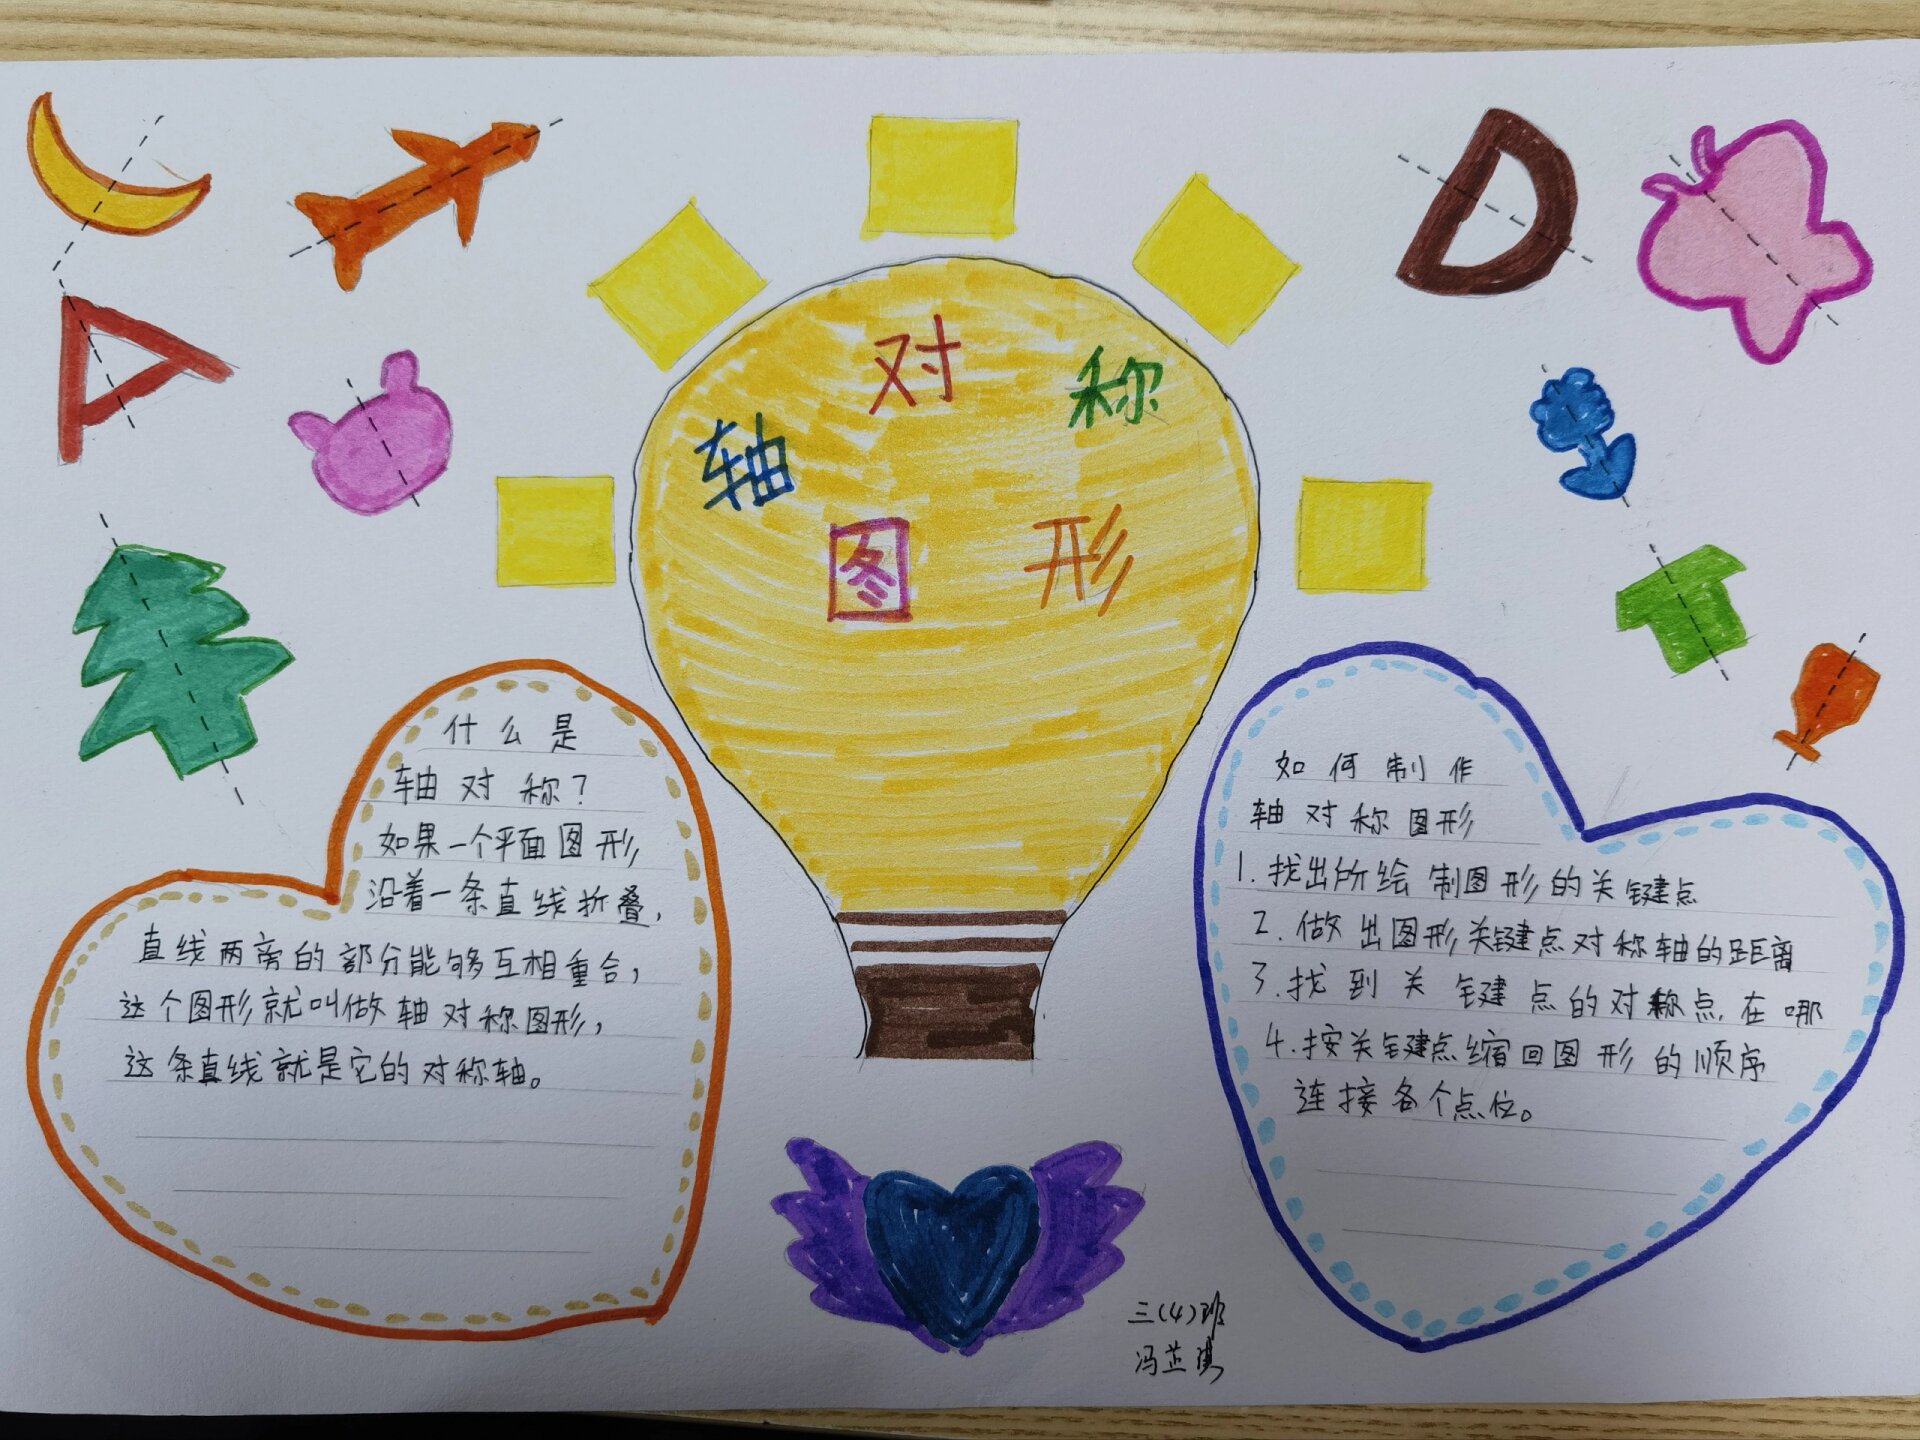 轴对称
图形
A
D
什么是
轴对称？
如果一个平面图形，
沿着一条直线折叠，
直线两旁的部分能够互相重合，
这个图形就叫做轴对称图形，
这条直线就是它的对称轴。
如何制作
轴对称图形
1.找出所绘制图形的关键点
2.做出图形关键点对称轴的距离
3.找到关键点的对称点在哪
4.按关键点缩回图形的顺序
连接各个点位。
三(4)班
冯芷琪